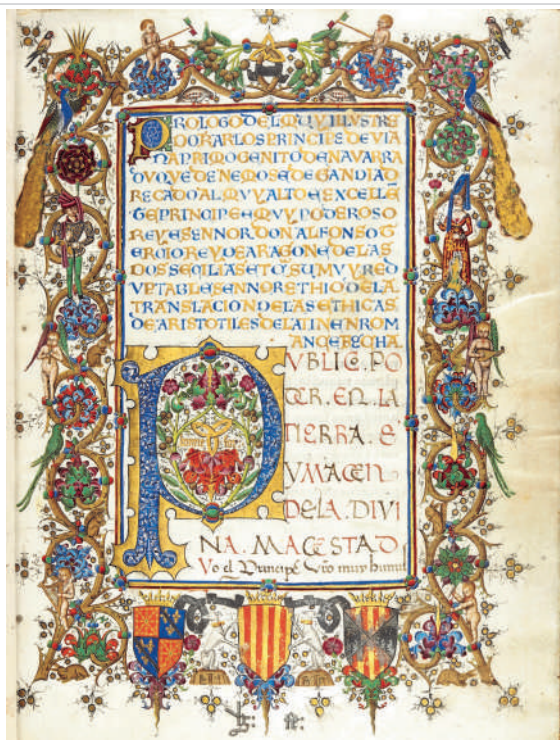 PROLOGO DEL MUY ILLUSTRE
DO KARLOS PRINCIPE DE VIA
NA PRIMOGENITO DE NAVARRA
DUQUE DE NEMOS E DE GANDIA D
REÇADO AL MUY ALTO E EXCELLẼ
TE PRINCIPE E MUY PODEROSO
REY E SENNOR DON ALFONSO T
ERCIO REY DE ARAGON E DE LAS
DOS SECILIAS SU MUY RED
UPTABLE SENNOR E THIO DE LA
TRANSLACION DE LAS ETHICAS
DE ARISTOTILES DE LATIN EN ROM
ANCE FECHA
PUBLICE. PO
ER. EN. LA
TIERRA. E
YMAGEN
DE LA. DIVI
NA. MAGESTAD
Yo el Principe vr̃o muy humil